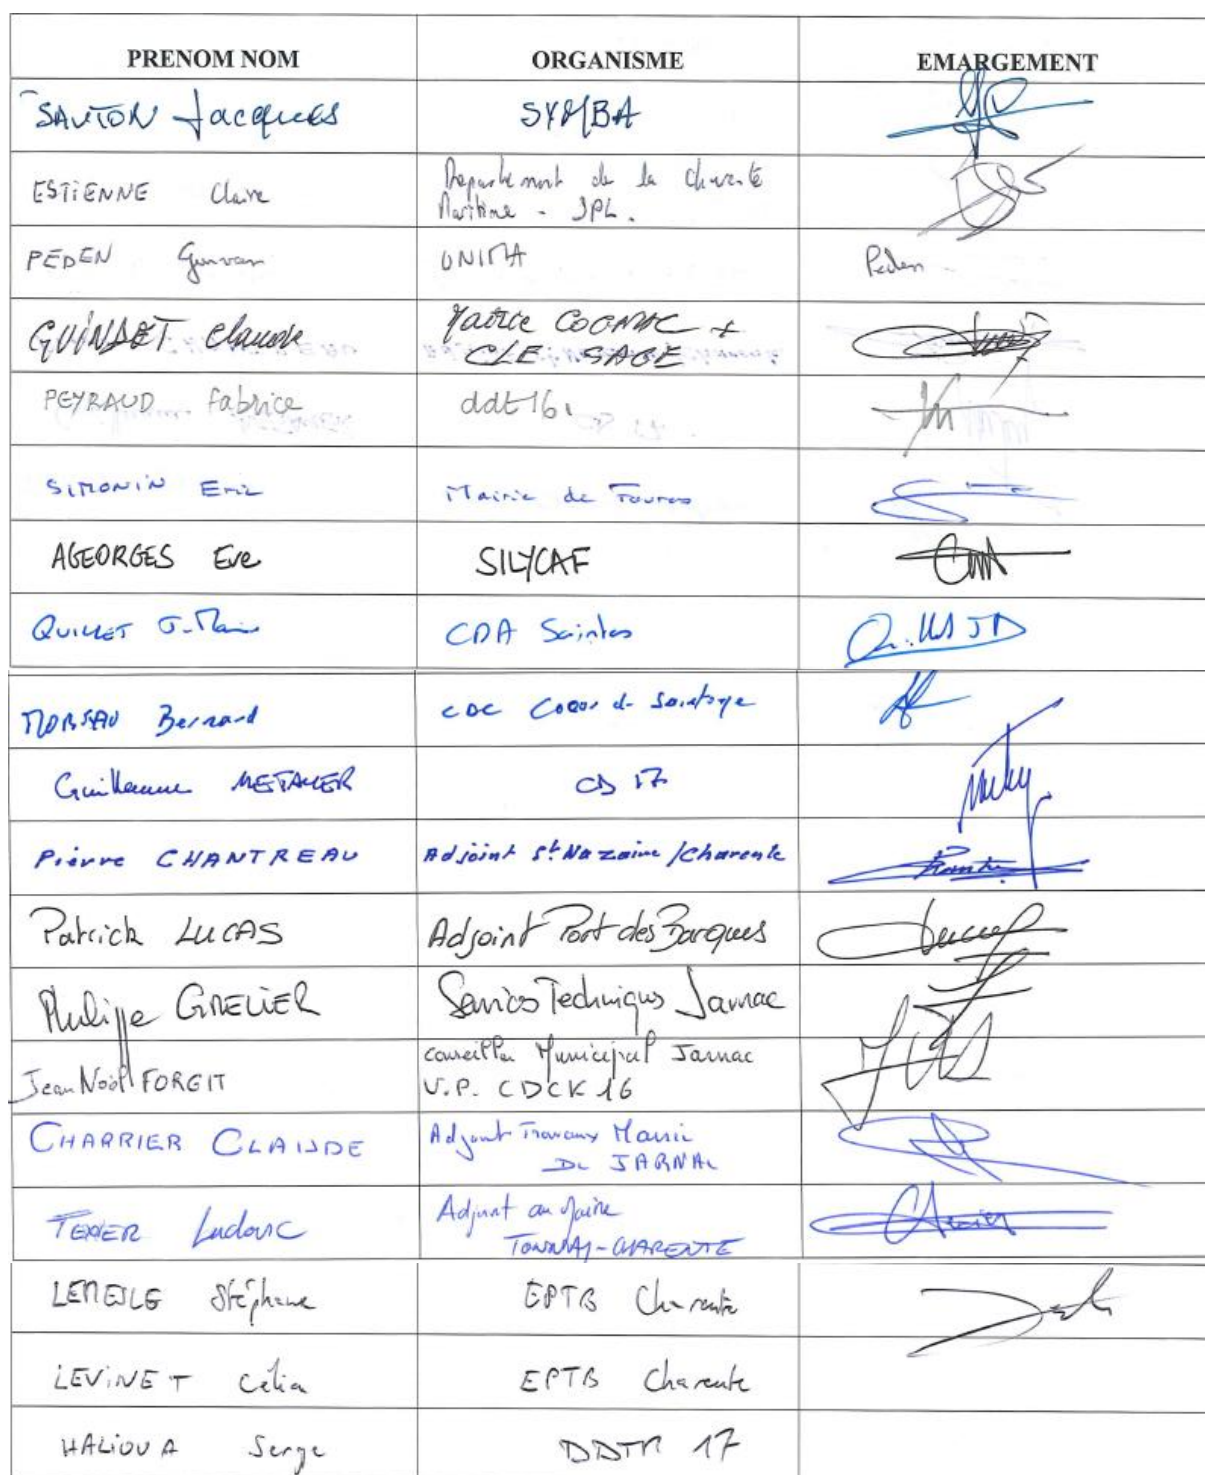 PRENOM NOM ORGANISME EMARGEMENT
SAUTON Jacques SYMBA
ESTIENNE Claire Département de la Charente
Maritime - JPL.
PEDEN Gurvan UNIMA Peden
GUINDET Claude Mairie COGNAC +
CLE SAGE
PEYRAUD Fabrice ddt 16
SIMONIN Eric Mairie de Fouras
AGEORGES Eve SILYCAF
QUILLET J-Marie CDA Saintes
MOREAU Bernard CDC Coeur de Saintonge
Guillaume METAYER CD 17
Pierre CHANTREAU Adjoint St Nazaire/Charente
Patrick LUCAS Adjoint Port des Barques
Philippe GRELIER Services Techniques Jarnac
Jean Noël FORGIT conseiller Municipal Jarnac
V.P. CDCK 16
CHARRIER CLAUDE Adjoint Travaux Mairie
DE JARNAC
TEXIER Ludovic Adjoint au Maire
TONNAY-CHARENTE
LEMESLE Stéphane EPTB Charente
LEVINET Célia EPTB Charente
HALIOUA Serge DDTM 17